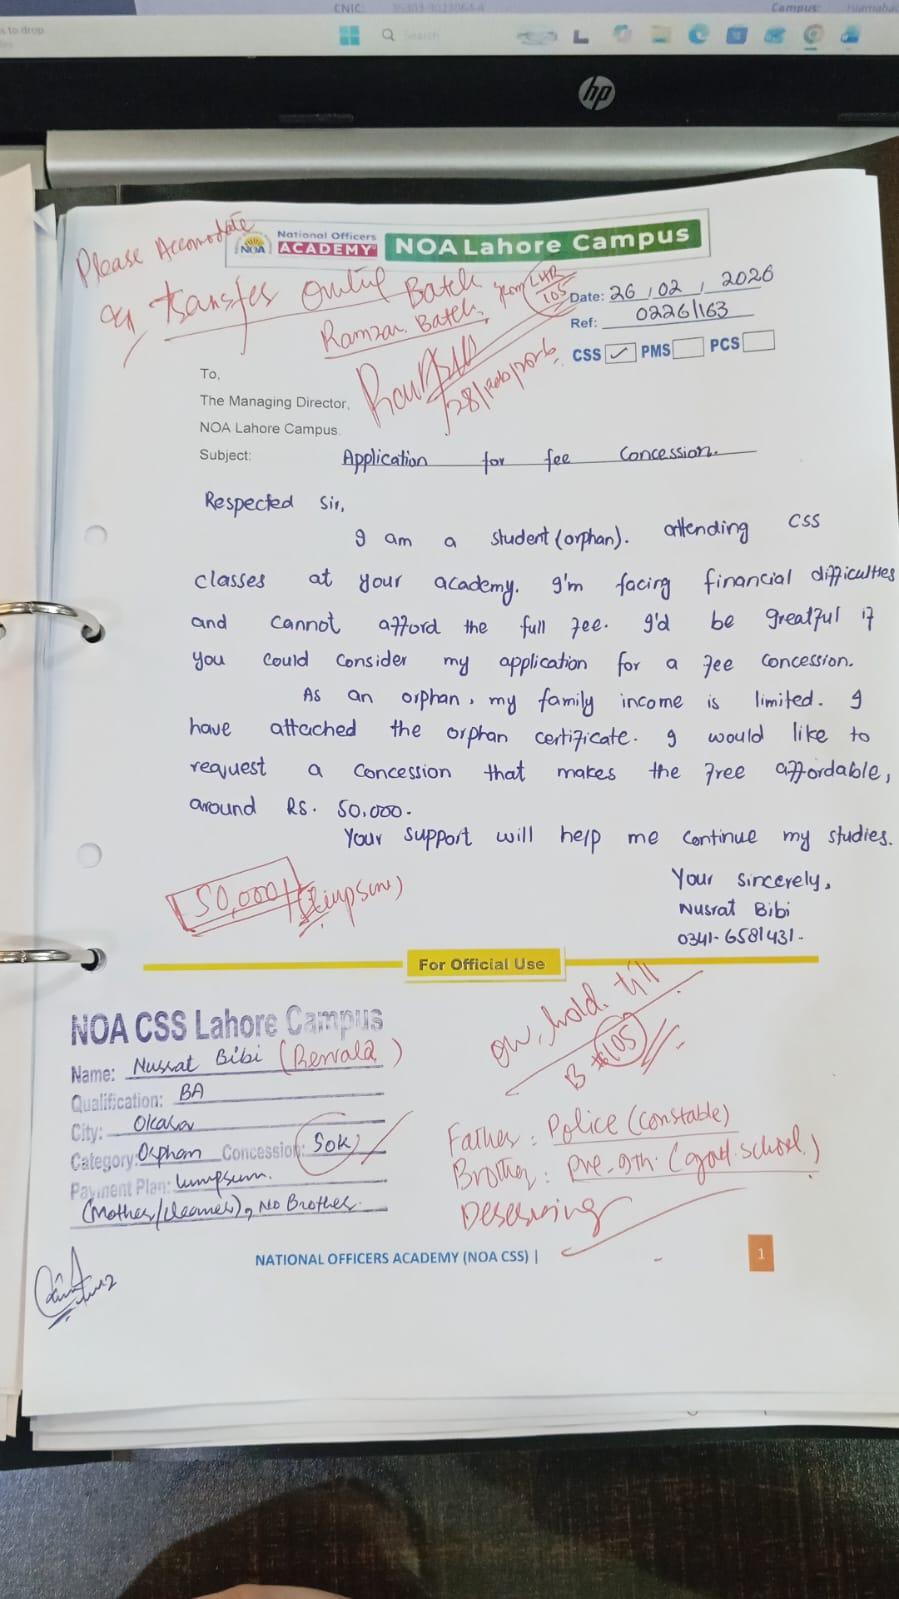 CNIC:
Campus:
s to drop
Search
hp
Please Accomodate
National Officers
NOA ACADEMY NOA Lahore Campus
transfer Batch from LHR 105
Ramzan Batch.
Date: 26, 02, 2026
Ref: 0226/163
CSS ✓ PMS PCS
To,
The Managing Director,
NOA Lahore Campus.
Subject: Application for fee Concession.
Respected Sir,
I am a student (orphan). attending CSS
classes at your academy. I'm facing financial difficulties
and cannot afford the full fee. I'd be greatful if
you could consider my application for a fee concession.
As an orphan, my family income is limited. I
have attached the orphan certificate. I would like to
request a concession that makes the free affordable,
around RS. 50,000.
Your support will help me continue my studies.
Your sincerely,
Nusrat Bibi
0341-6581431.
50,000/
For Official Use
on hold till
B # 105
NOA CSS Lahore Campus
Name: Nusrat Bibi (Renala)
Qualification: BA
City: Okara
Category: Orphan Concession: 50k
Payment Plan: lumpsum.
(Mother/cleaner), No Brother.
Father: Police (Constable)
Brother: Pre-9th. (govt. school.)
Deserving
NATIONAL OFFICERS ACADEMY (NOA CSS) |
1